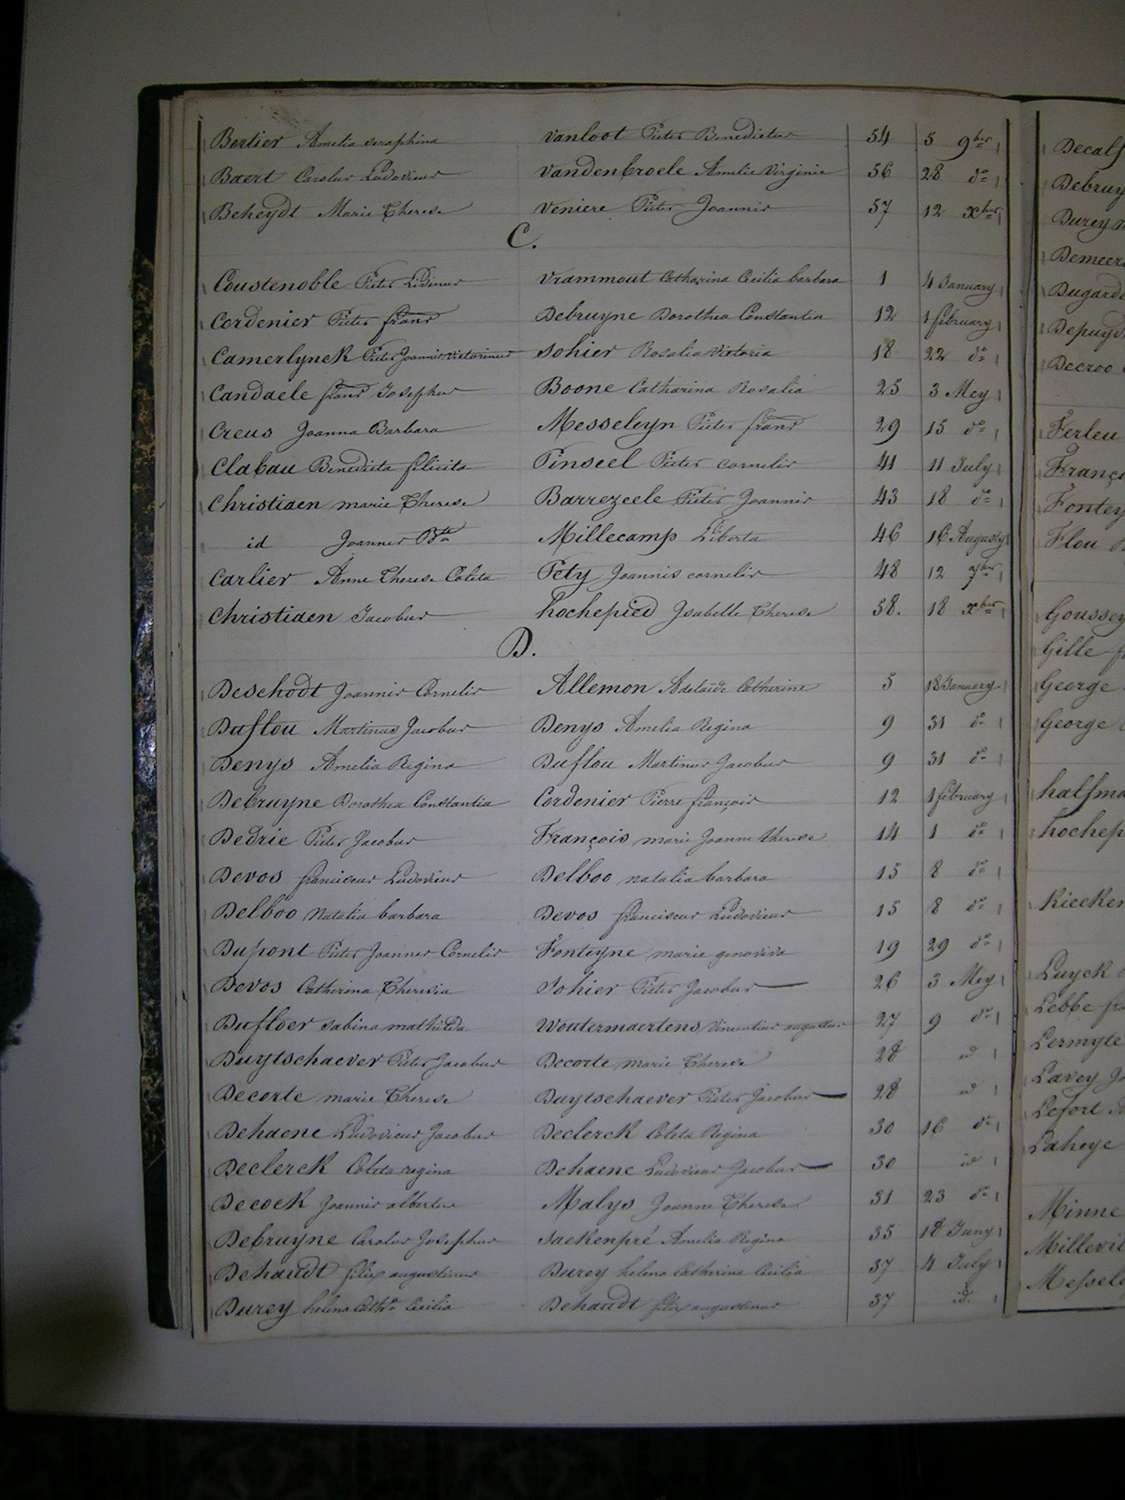 Bertier Amelia seraphina Vanloot Pieter Benedictus 54 5 9ber
Baert Carolus Ludovicus Vandenbroele Amelie Virginie 56 28 do
Beheydt Marie Therese Veniere Pieter Joannis 57 12 xber
C.
Coustenoble Pieter Livinus Vrammout Catharina Cecilia barbara 1 4 January
Cordenier Pieter frans Debruyne Dorothea Constantia 12 1 february
Camerlynck Pieter Joannis victorinus Sohier Rosalia Victoria 18 22 do
Candaele frans Josephus Boone Catharina Rosalia 25 3 Mey
Creus Joanna Barbara Messeleyn Pieter frans 29 15 do
Clabau Benedicta felicita Pinseel Pieter cornelis 41 11 July
Christiaen marie Therese Barrezeele Pieter Joannis 43 18 do
id Joannes Bte Millecamp Liberta 46 16 Augusty
Carlier Anne Therese Coleta Pety Joannis cornelis 48 12 7ber
Christiaen Jacobus hochepied Isabelle Therese 58. 18 xber
D.
Deschodt Joannis Cornelis Allemon Adelaide Catherine 5 18 January
Duflou Martinus Jacobus Denys Amelia Regina 9 31 do
Denys Amelia Regina Duflou Martinus Jacobus 9 31 do
Debruyne Dorothea Constantia Cordenier Pierre françois 12 1 february
Dedrie Pieter Jacobus François marie Joanne therese 14 1 do
Devos franciscus Ludovicus Delboo natalia barbara 15 8 do
Delboo Natalia barbara Devos franciscus Ludovicus 15 8 do
Dupont Pieter Joannes Cornelis Fonteyne marie genoviva 19 29 do
Devos Catherina Theresia Sohier Pieter Jacobus 26 3 Mey
Dufloer sabina mathilda Woutermaertens Vincentius augustus 27 9 do
Duytschaever Pieter Jacobus Decorte marie Therese 28 id
Decorte marie Therese Duytschaever Pieter Jacobus 28 id
Dehaene Ludovicus Jacobus Declerck Coleta Regina 30 16 do
Declerck Coleta regina Dehaene Ludovicus Jacobus 30 id
Decock Joannis albertus Malys Joanne Therese 31 23 do
Debruyne Carolus Josephus Sackenpré Amelia Regina 35 18 Juny
Dehaudt félix augustinus Durey helena Catherine Cecilia 37 4 July
Durey helena Cathe Cecilia Dehaudt félix augustinus 37 id.
Debruy
Durey
Depuyd
Decroo
Ferleu
Franço
Fontey
Flou
Goussey
Gille
George
George
halfma
hochep
Luyck
Lebbe
Lermyte
Lavey
Lefort
Laheye
Minne
Millevil